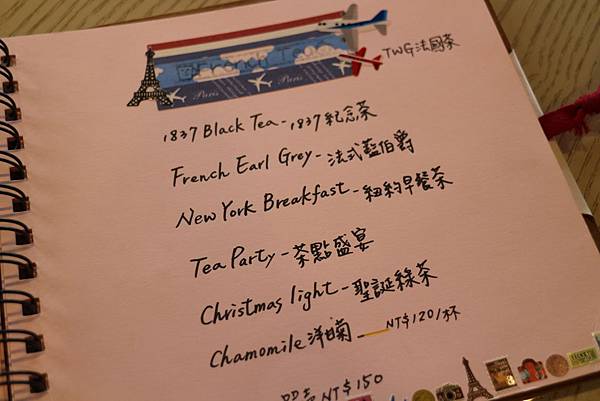 TWG法國茶
Paris
Paris
1837 Black Tea - 1837紀念茶
French Earl Grey - 法式藍伯爵
New York Breakfast - 紐約早餐茶
Tea Party - 茶點盛宴
Christmas light - 聖誕綠茶
Chamomile 洋甘菊 — NT$120/杯
NT$150